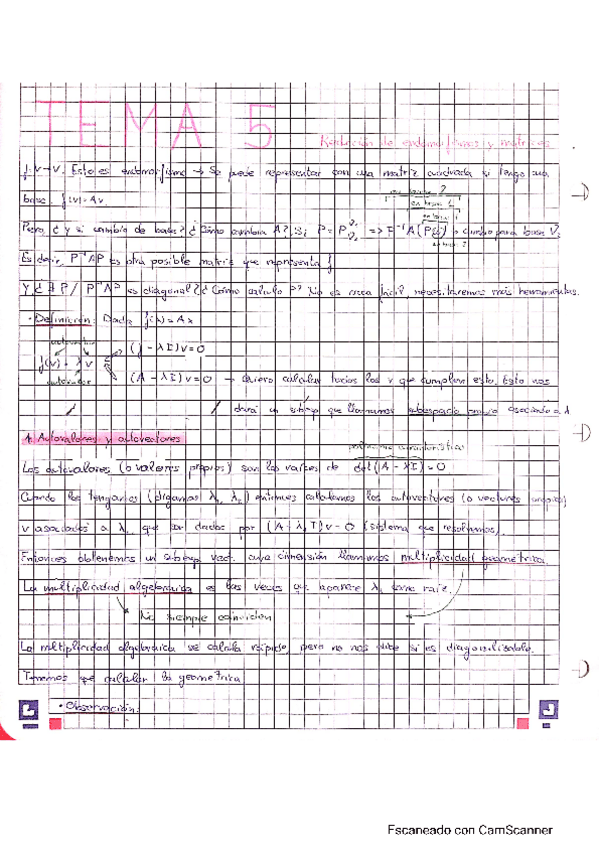 TEMA 5
Reducción de endomorfismos y matrices
f: V→V. Esto es endomorfismo → Se puede representar con una matriz cuadrada si tengo una
base. f(v) = Av
en base 2
en base 1
Pero, ¿y si cambio de base? ¿Cómo cambia A? Si P = P => P⁻¹A(P) cambio para base
Es decir, P⁻¹AP es otra posible matriz que representa f
Y ¿∃ P / P⁻¹AP es diagonal? ¿Cómo calculo P? No es cosa fácil, necesitaremos más herramientas.
· Definición: Dada f(x) = Ax
autovalor
f(v) = λv
autovector
(f - λI)v = 0
(A - λI)v = 0 → quiero calcular todos los v que cumplan esto. Esto nos
dará un subesp que llamamos subespacio propio asociado a λ
1. Autovalores y autovectores
polinomio característico
Los autovalores (o valores propios) son las raíces de det(A - λI) = 0
Cuando los tengamos (digamos λ₁, λ₂) entonces calculamos los autovectores (o vectores propios)
v asociados a λ, que son dados por (A - λ I)v = 0 (sistema que resolvemos).
Entonces obtenemos un subesp. vect. cuya dimensión llamamos multiplicidad geométrica.
La multiplicidad algebraica es las veces que aparece λ como raíz.
No siempre coinciden
La multiplicidad algebraica se calcula rápido, pero no nos dice si es diagonalizable.
Tenemos que calcular la geométrica
· Observación:
Escaneado con CamScanner